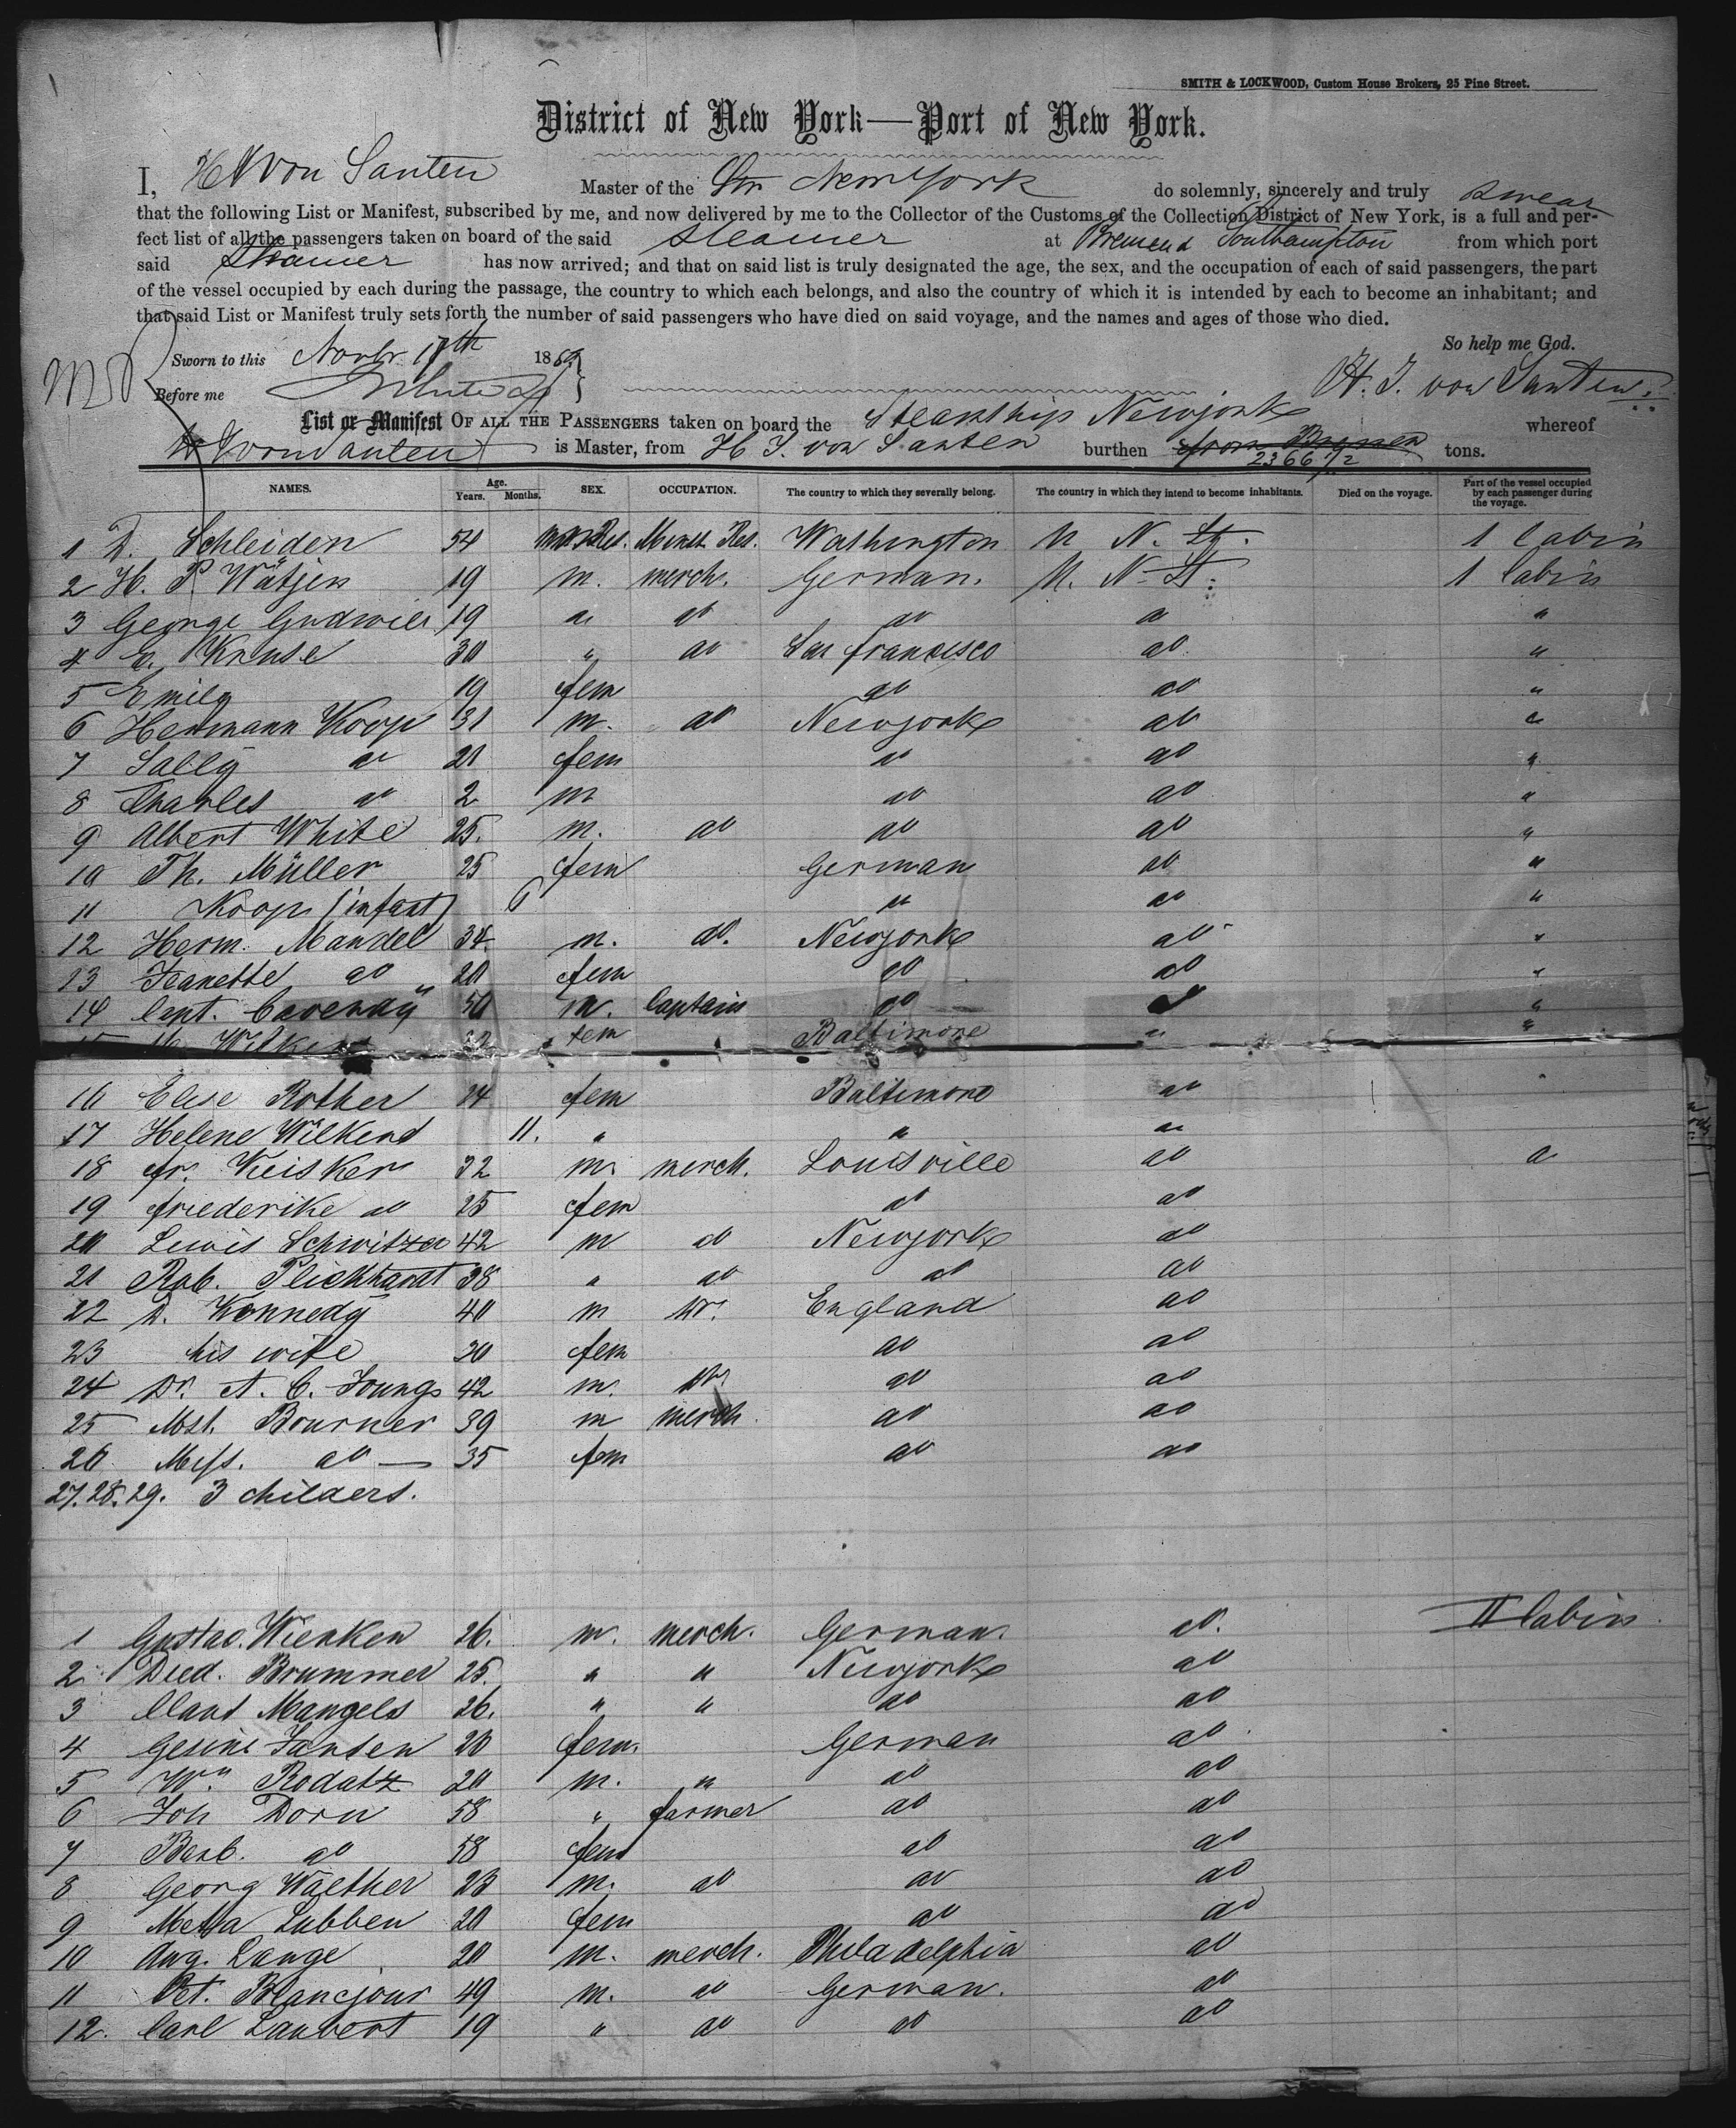 SMITH & LOCKWOOD, Custom House Brokers, 25 Pine Street.
District of New York—Port of New York.
I, H von Santen Master of the Str New York do solemnly, sincerely and truly swear
that the following List or Manifest, subscribed by me, and now delivered by me to the Collector of the Customs of the Collection District of New York, is a full and per-
fect list of all the passengers taken on board of the said Steamer at Bremen & Southampton from which port
said Steamer has now arrived; and that on said list is truly designated the age, the sex, and the occupation of each of said passengers, the part
of the vessel occupied by each during the passage, the country to which each belongs, and also the country of which it is intended by each to become an inhabitant; and
that said List or Manifest truly sets forth the number of said passengers who have died on said voyage, and the names and ages of those who died.
So help me God.
Sworn to this Novbr. 17th 186
Before me H. J. von Santen
List or Manifest OF ALL THE PASSENGERS taken on board the Steamship Newyork whereof
von Santen is Master, from H J. von Santen burthen from Bremen 2366 1/2 tons.
NAMES. Age. Years. Months. SEX. OCCUPATION. The country to which they severally belong. The country in which they intend to become inhabitants. Died on the voyage. Part of the vessel occupied by each passenger during the voyage.
1 D. Schleiden 54 Minst. Res. Washington U N. St. 1 Cabin
2 H. P. Wätjen 19 m. merch. German. U. N. St. 1 Cabin
3 George 19 " do do do "
4 E. Kruse 30 " do San francisco do "
5 Emily 19 fem do do "
6 Hermann Koop 31 m. do Newyork do "
7 Sally do 21 fem " do "
8 Charles do 2 m do do "
9 Albert White 25. m. do do do "
10 Th. Müller 25 fem German do "
11 Koop (infant) 6 " do "
12 Herm. Mandel 34 m. do. Newyork do "
13 Jeanette do 20 fem do do "
14 Capt. 50 m. Captain do "
15 Wilkens 32 fem Baltimore " "
16 Elise Rother 24 fem Baltimore do "
17 Helene Wilkens 11. " " "
18 fr. Keisker 32 m. merch. Louisville do "
19 friederike do 25 fem do do
20 Lewis Schwitzer 42 m do Newyork do
21 Rob. Plickhardt 38 " do do do
22 D. Kennedy 40 m Dr. England do
23 his wife 30 fem do do
24 Dr. A. C. Youngs 42 m. Dr. do do
25 Mst. Bourner 39 m merch. do do
26 Miss. do — 35 fem do do
27. 28. 29. 3 childers.
1 Gustav. Wienken 26. m. merch. German. do. II Cabin
2. Died. Brummer 25. " " Newyork do
3 Claus Mangels 26. " " do do
4 Gesine Jansen 20 fem. German do
5 Wm Rodatz 20 m. " do do
6 Joh Dorn 58 " farmer do do
7 Barb. do 58 fem do do
8 Georg Walther 23 m. do do do
9 Metta Lubben 20 fem do do
10 Aug. Lange 20 m. merch. Philadelphia do
11 Pet. Blancjour 49 m. do German. do
12. Carl Laubert 19 " do do do